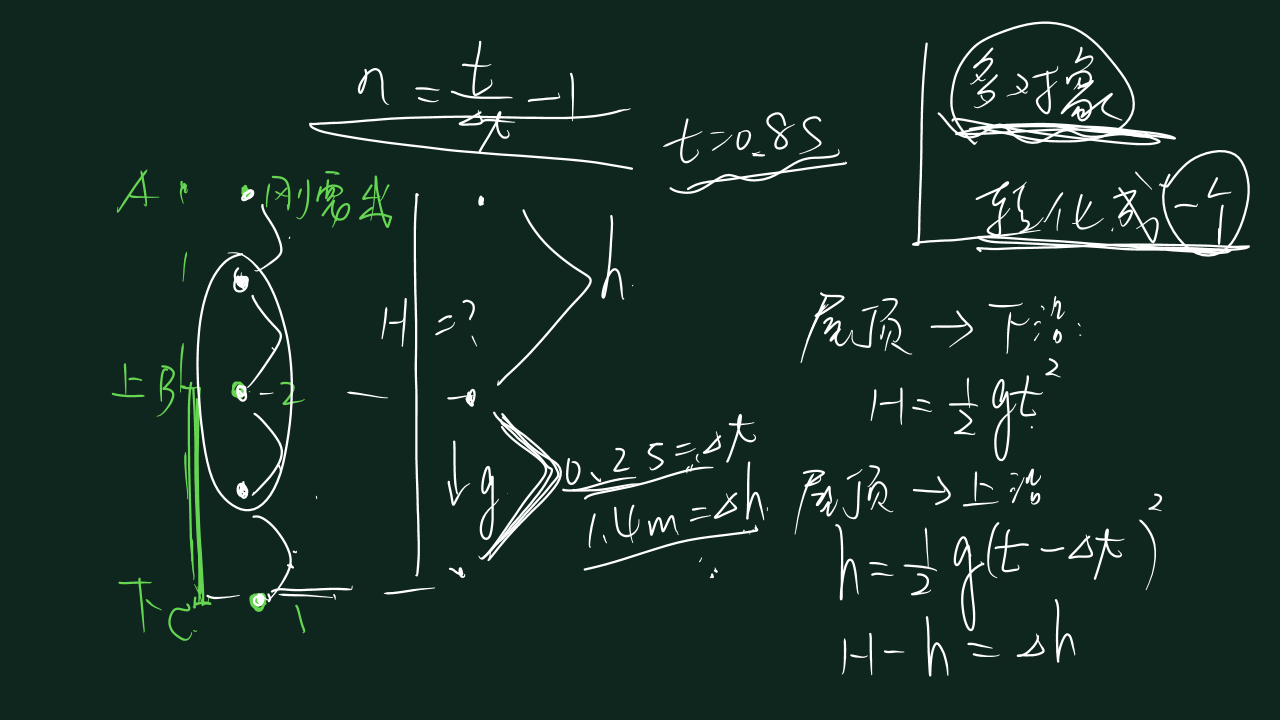 n = t/Δt - 1
t=0.8s
多对象
转化成一个
A
刚要
1
上B
2
下C
1
H=?
h
g
0.2s=Δt
1.4m=Δh
屋顶→下沿:
H=½gt²
屋顶→上沿
h=½g(t-Δt)²
H-h=Δh